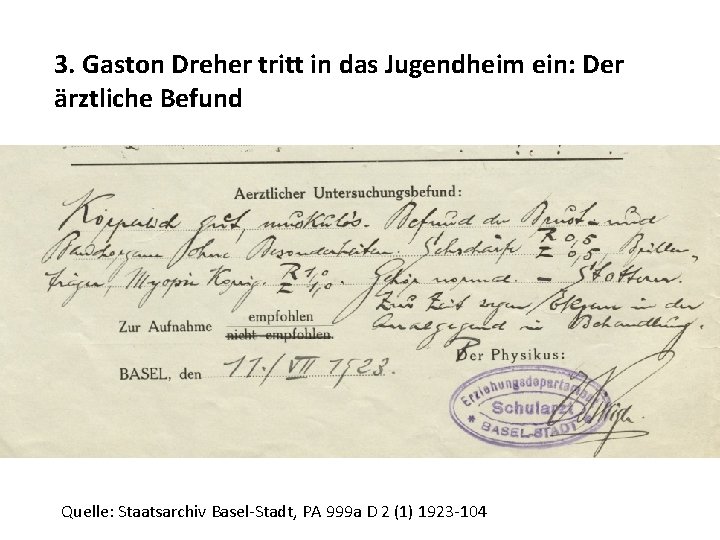 3. Gaston Dreher tritt in das Jugendheim ein: Der
ärztliche Befund
Aerztlicher Untersuchungsbefund:
Körperlich gut, muskulös. Befund der Brust- und
Bauchorgane ohne Besonderheiten. Sehschärfe R 0,5 L 0,5 Brillen-
träger, Myopie R 1,0 L 1,0. Gehör normal. – Stottern.
Zur Zeit wegen Ekzem in der
Analgegend in Behandlung.
Zur Aufnahme empfohlen
nicht empfohlen.
Der Physikus:
BASEL, den 11./VII 1923.
Erziehungsdepartement
Schularzt
* BASEL-STADT *
Quelle: Staatsarchiv Basel-Stadt, PA 999a D 2 (1) 1923-104